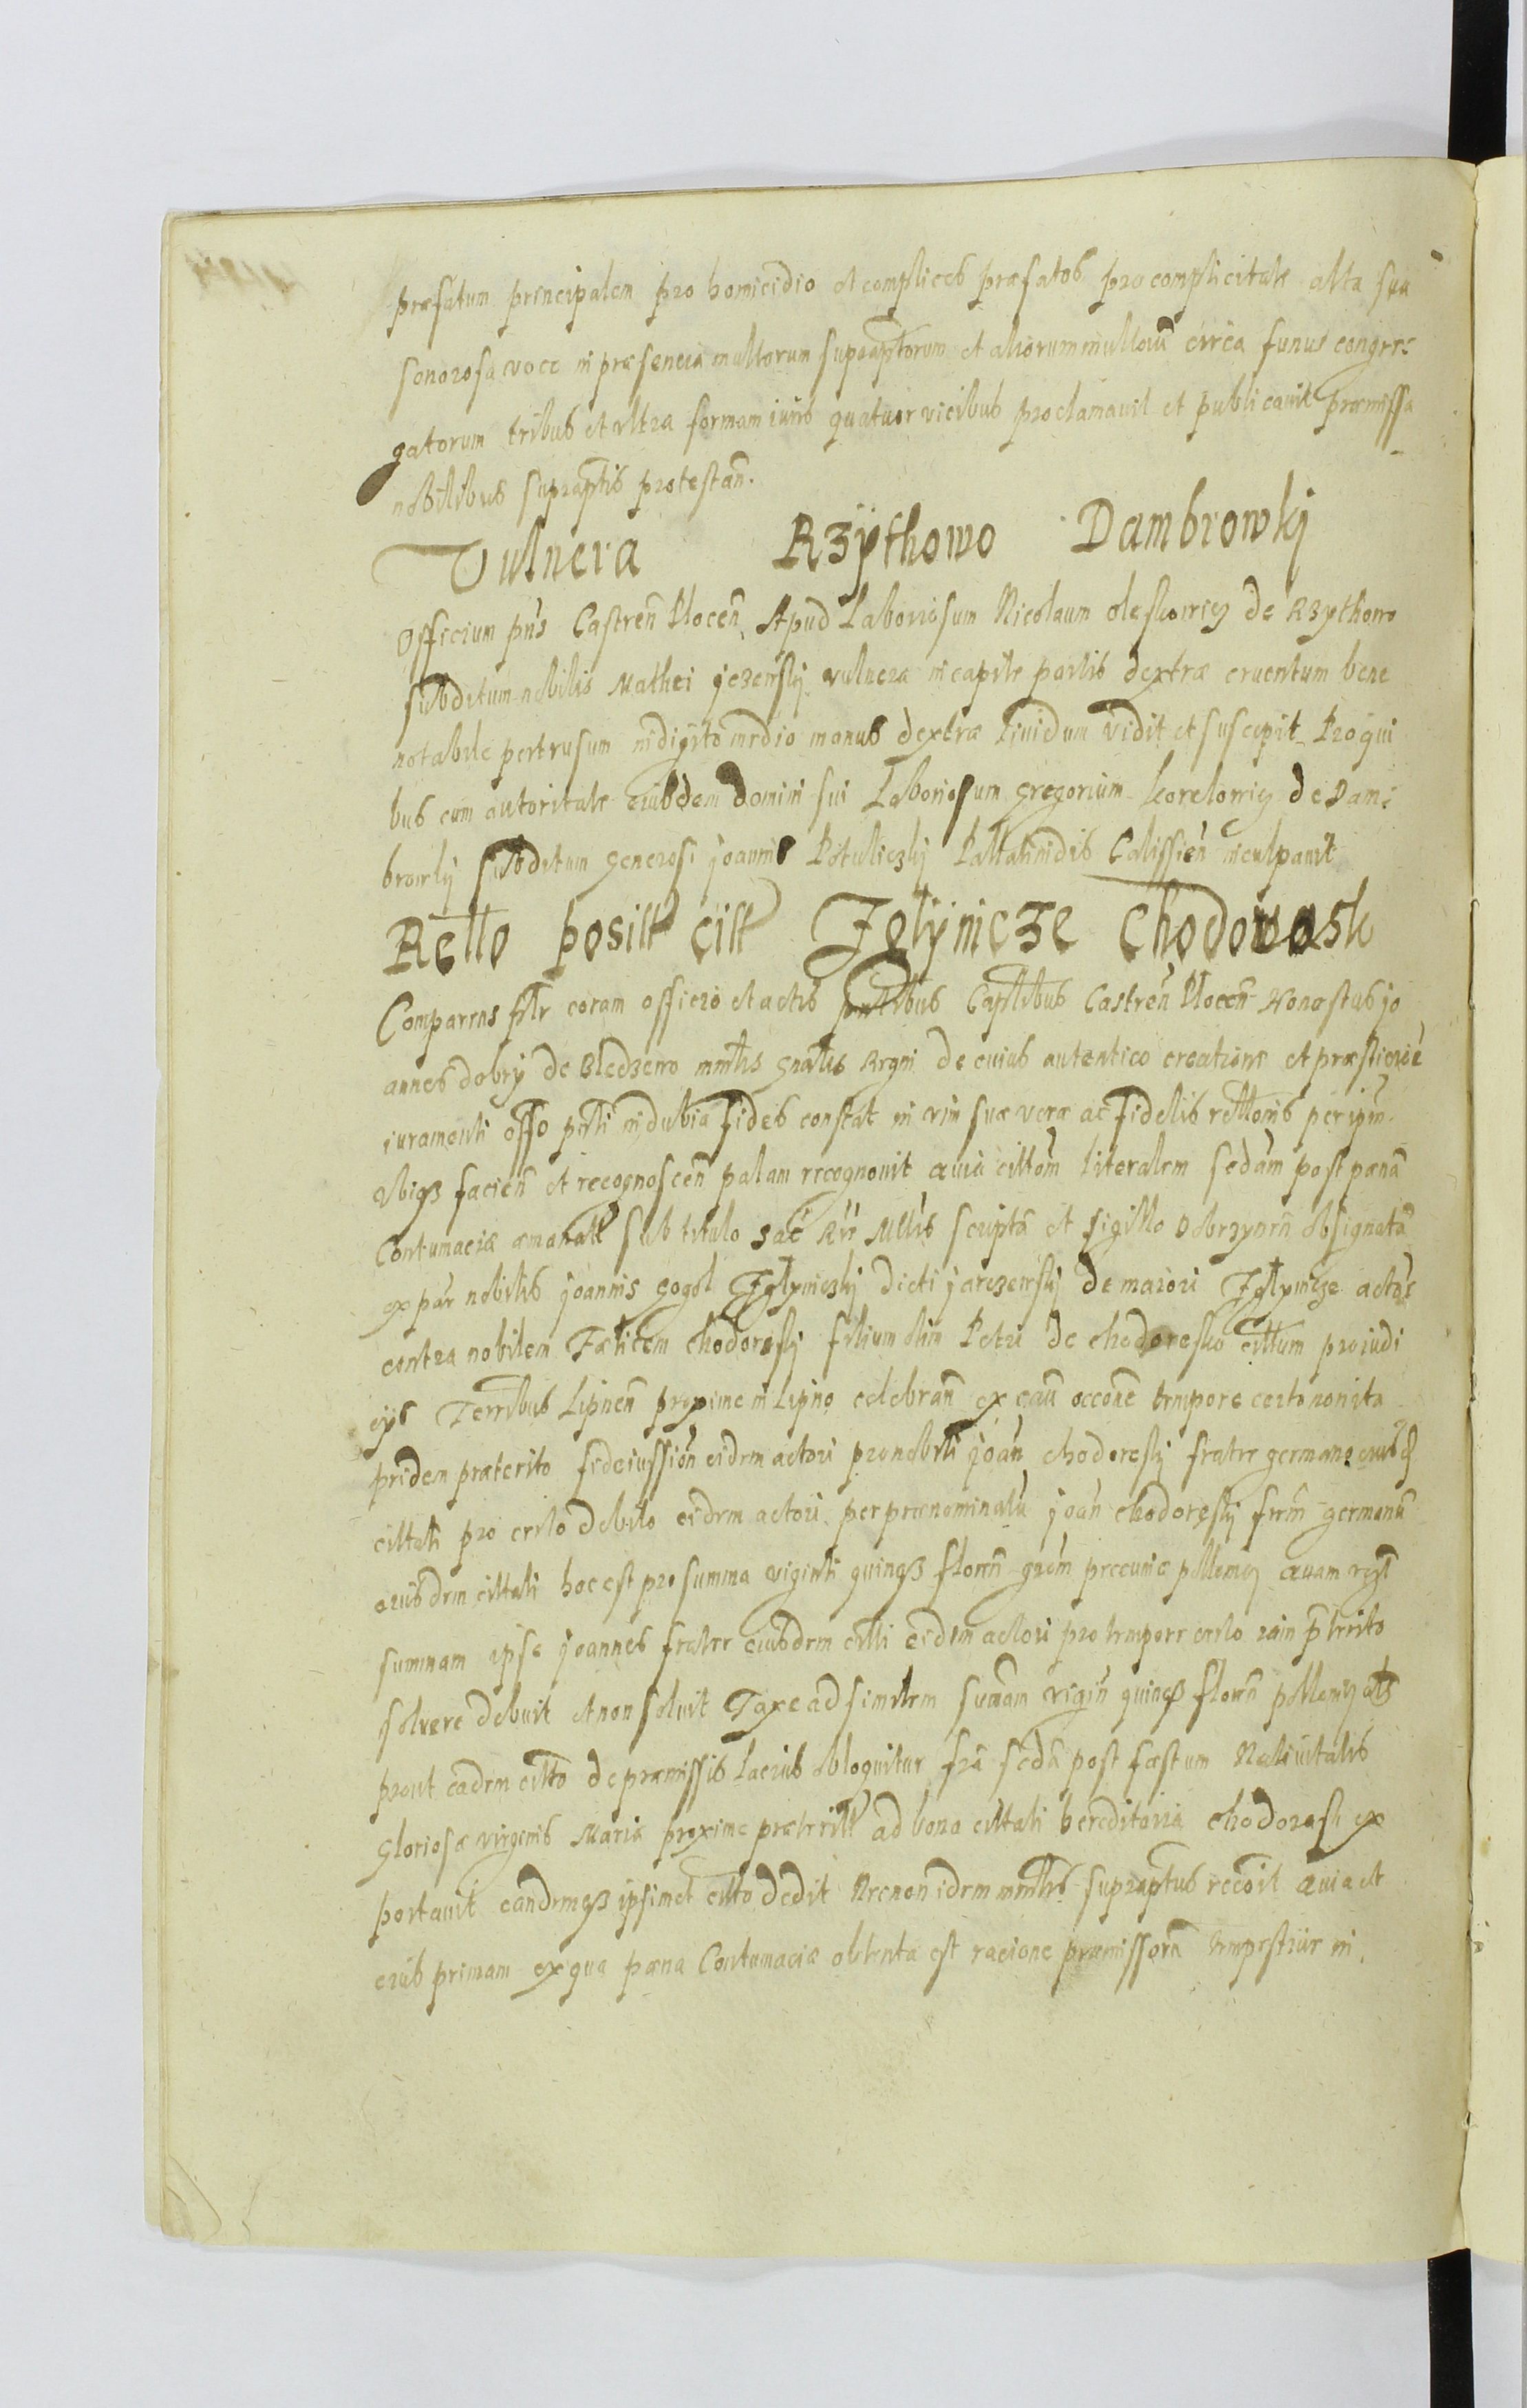 præfatum principalem pro homicidio et complices præfatos pro complicitate alta sua
sonorosa voce in præsencia multorum supraptorum et aliorum multorũ circa funus congre=
gatorum tribus et ultra formam iuris quatuor vicibus proclamavit et publicavit præmissa
nobilibus supraptis protestañ.
Vulnera Rzÿthowo Dambrowkj
Officium pñs Castreñ Ploceñ Apud Laboriosum Nicolaum oleskowicz de Rzythowo
subditum nobilis Mathei jezewskj vulnera in capite partis dextræ cruentum bene
notabile pertrusum in digito medio manus dextræ lividum vidit et suscepit Pro qui
bus cum autoritate eiusdem domini sui Laboriosum gregorium korelowicz de Dam=
browkj subditum generosi joannis Potuliczkj Pallatinidis Calissieñ inculpavit
Rello posit citt Jglÿnicze Chodorask
Comparens plr coram officio et actis pñtibus Captlibus Castreñ Ploceñ Honestus jo
annes dobrÿ de Bledzewo mnrlis gnalis Regni de cuius autentico creatione et præsticioẽ
iuramenti offo pñti indubia fides constat in vim suæ veræ ac fidelis rellonis per ipm
ibiqz facieñ et recognosceñ palam recognovit quia cittom literalem sedam post pænã
Contumaciæ emanat sub titulo Sac Rie Mttis scriptã et sigillo Dobrzyneñ obsignatã
ex par nobilis joannis gogol Jglyniczkj dicti jarczewskj de maiori Jglynicze actor
contra nobilem Fælicem Chodoraskj filium olim Petri de chodorasko cittum pro iudi
cijs Terribus Lipneñ proxime in Lipno celebrañ ex eaũ occone tempore certo non ita
pridem præterito fideiussioñ eidem actori pro nobili joañ chodoreskj fratre germano eiusd
cittati pro certo debito eidem actori per prænominatũ joañ chodoręskj frem germanũ
eiusdem cittati hoc est pro summa viginti quinqz floreñ grom pecuniæ pollemcz quam
summam ipse joannes frater eiusdem citti eidem actori pro tempore certo iam pterito
solvere debuit et non soluit Taxe ad similem sumam vigiñ quinqz floreñ pollemcz
prout eadem citto de præmissis lacius obloquitur fra sedã post fæstum Nativitatis
Gloriosæ virginis Mariæ proxime præterit ad bona cittati hereditaria chodorask ex
portavit eandemqz ipsimet citto dedit Necnon idem mnrlis supraptus recoit quia et
eius primam ex qua pæna Contumaciæ obtenta est racione præmissorũ tempestiue in